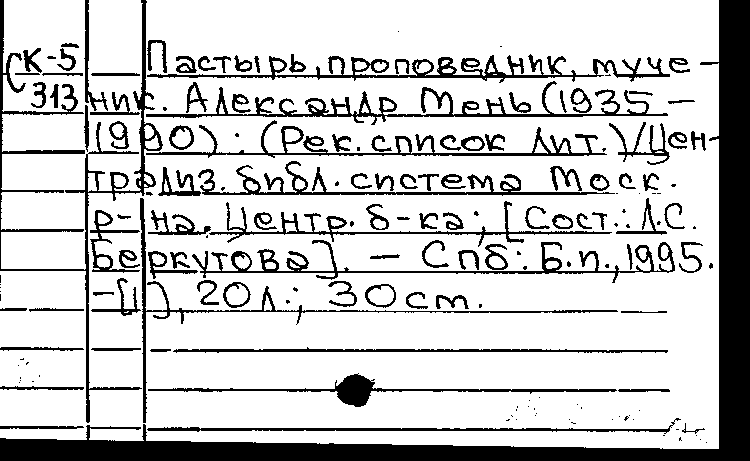 СК-5 Пастырь, проповедник, муче-
313 ник. Александр Мень (1935 -
1990) : (Рек. список лит.)/Цен-
трализ. библ. система Моск.
р-на. Центр. б-ка; [Сост.: Л.С.
Беркутова]. - Спб: Б.п., 1995.
-[1], 20 л.; 30 cm.